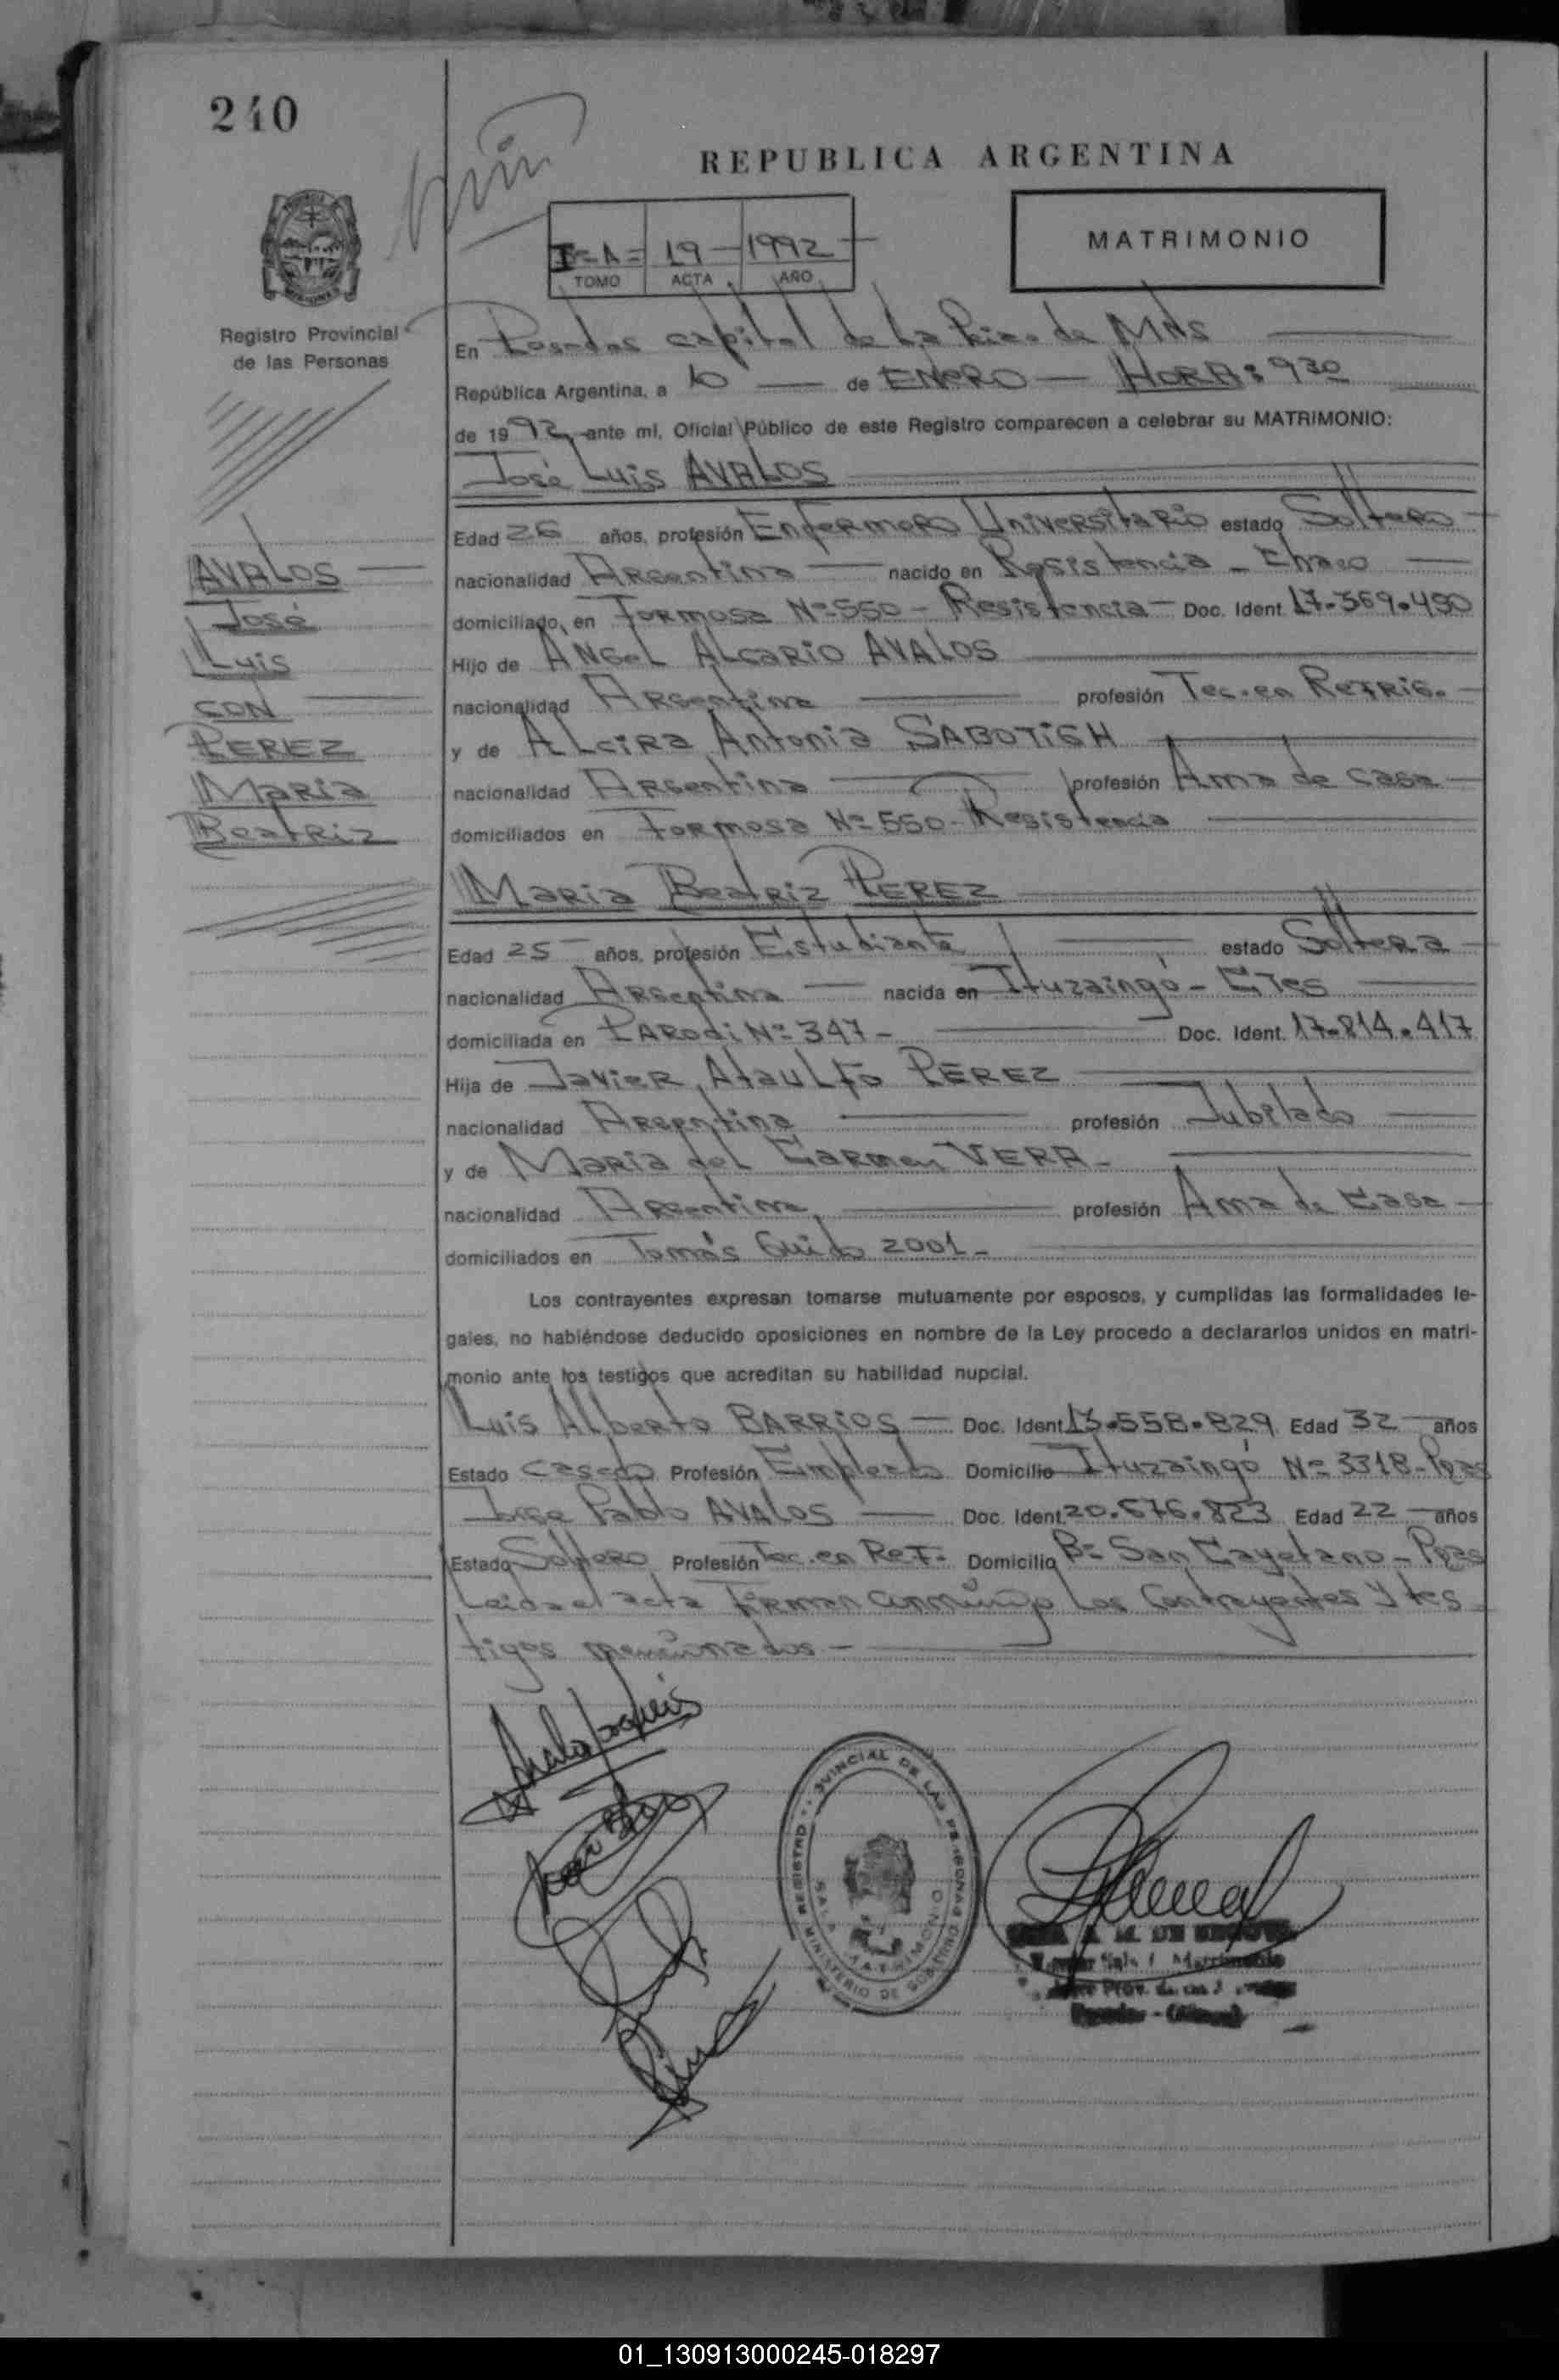 240
REPUBLICA ARGENTINA
I=A= 19 1992
TOMO ACTA AÑO
MATRIMONIO
Registro Provincial
de las Personas
AVALOS
José
Luis
CON
PEREZ
Maria
Beatriz
En Posadas capital de La de Mns
República Argentina, a 10 de ENERO HORA: 930
de 1992 ante mí, Oficial Público de este Registro comparecen a celebrar su MATRIMONIO:
José Luis AVALOS
Edad 26 años, profesión Enfermero Universitario estado Soltero
nacionalidad Argentina nacido en Resistencia - Chaco
domiciliado en Formosa Nº 550 - Resistencia - Doc. Ident. 17.369.490
Hijo de ANGEL ALGARIO AVALOS
nacionalidad Argentina profesión Tec. en Refrig.
y de ALCIRA Antonia SABOTIGH
nacionalidad Argentina profesión Ama de casa
domiciliados en Formosa Nº 550 - Resistencia
Maria Beatriz PEREZ
Edad 25 años, profesión Estudiante estado Soltera
nacionalidad Argentina nacida en Ituzaingó - CTes
domiciliada en PARODI Nº 347 - Doc. Ident. 17.814.417
Hija de Javier Ataulfo PEREZ
nacionalidad Argentina profesión Jubilado
y de Maria del Carmen VERA -
nacionalidad Argentina profesión Ama de Casa
domiciliados en Tomás Guido 2001 -
Los contrayentes expresan tomarse mutuamente por esposos, y cumplidas las formalidades le-
gales, no habiéndose deducido oposiciones en nombre de la Ley procedo a declararlos unidos en matri-
monio ante los testigos que acreditan su habilidad nupcial.
Luis Alberto BARRIOS Doc. Ident 13.558.829 Edad 32 años
Estado casado Profesión Empleado Domicilio Ituzaingó Nº 3318 - Pdas
Jorge Pablo AVALOS Doc. Ident. 20.676.823 Edad 22 años
Estado Soltero Profesión Tec. en Ref. Domicilio Bº San Cayetano - Pdas
Leida el acta firman conmigo los contrayentes y tes
tigos mencionados -
REGISTRO PROVINCIAL DE LAS PERSONAS
MINISTERIO DE GOBIERNO
SALA MATRIMONIO
01_130913000245-018297